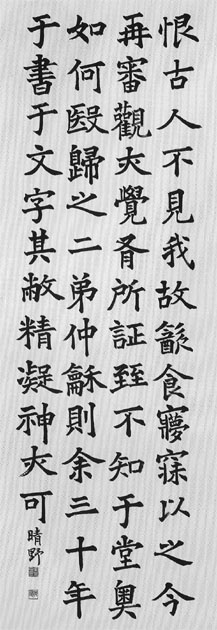 恨古人不見我故㱃食㝱寐以之今
再審觀大覺胥所証至不知于堂奧
如何歸之二弟仲龢則余三十年
于書于文字其敝精凝神大可
晴野